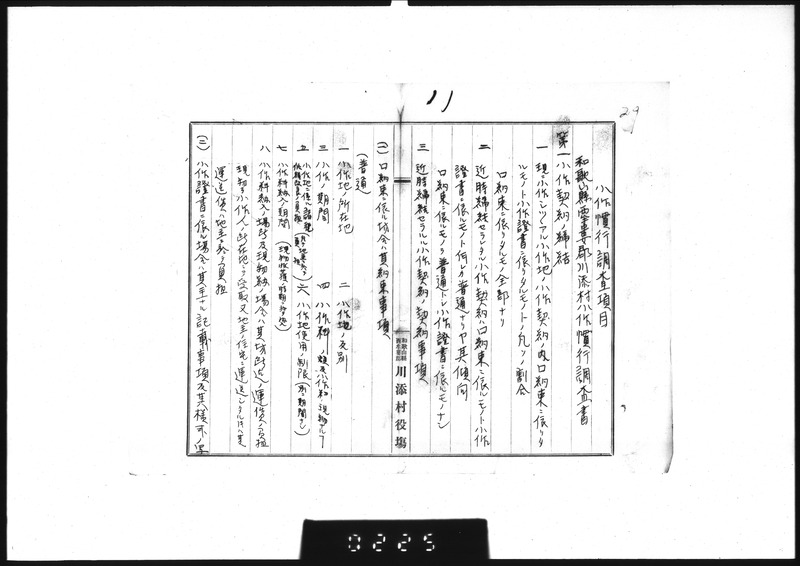 小作慣行調査項目
和歌山縣西牟婁郡川添村小作慣行調査書
第一 小作契約ノ締結
一 現ニ小作シツヽアル小作地ノ小作契約ノ内口約束ニ依リタ
ルモノト小作證書ニ依リタルモノトノ凡ソノ割合
口約束ニ依リタルモノ全部ナリ
二 近時締結セラレタル小作契約ハ口約束ニ依ルモノト小作
證書ニ依ルモノト何レヲ普通トナリヤ其傾向
口約束ニ依ルモノヲ普通トシ小作證書ニ依ルモノナシ
三 近時締結セラルル小作契約ノ契約事項
(一) 口約束ニ依ル場合ハ其約束事項
(普通)
一 小作地ノ所在地 二 小作地ノ反別
三 小作ノ期間 四 小作料
五 小作地ニ係ル諸税 六 小作地使用ノ制限(別ニ期間ナシ)
七 小作料納入ノ期間
八 小作料納入ノ場所及現物納場合ハ其場所迄ノ運賃ノ負担
現物ヲ小作人ノ所在地ニテ受取又地主住宅ニ運送シタル
運送賃ハ地主ニ於テ負担
(二) 小作證書ニ依ル場合ハ其主ナル記載事項及其様式ノ
和歌山縣
西牟婁郡
川添村役場
11
29
0225